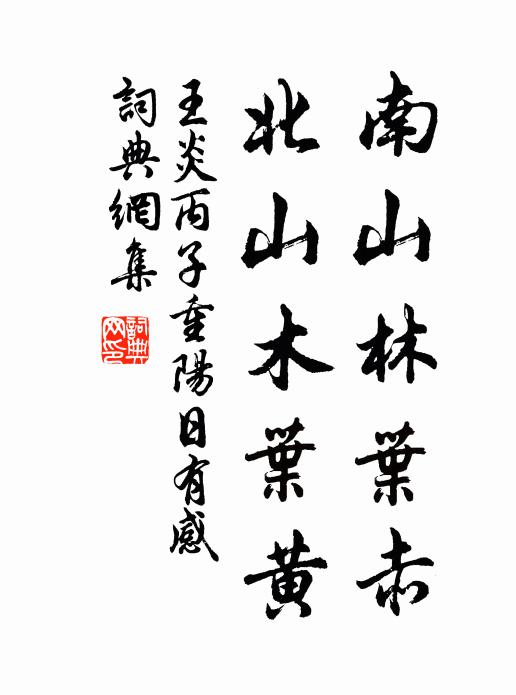 南山林葉赤
北山木葉黄
王炎丙子重陽日有感
詞典網集
詞典
网印